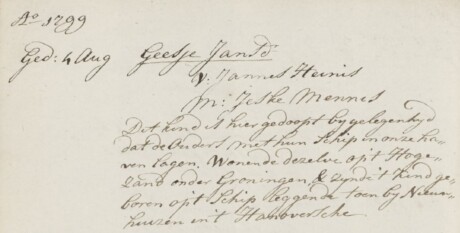 Ao 1799
Ged: 4 Aug Geesje Jans Dr
v: Jannes Heinis
m: Jeske Mennes
Dit kind is hier gedoopt by gelegenhyd
dat de Ouders met hun Schip in onze ha-
ven lagen, Wonende dezelve op't Hoge-
Zand onder Groningen, & zynde't kind ge-
boren op't Schip leggende toen by Nieuw-
huizen in't Hanoversche